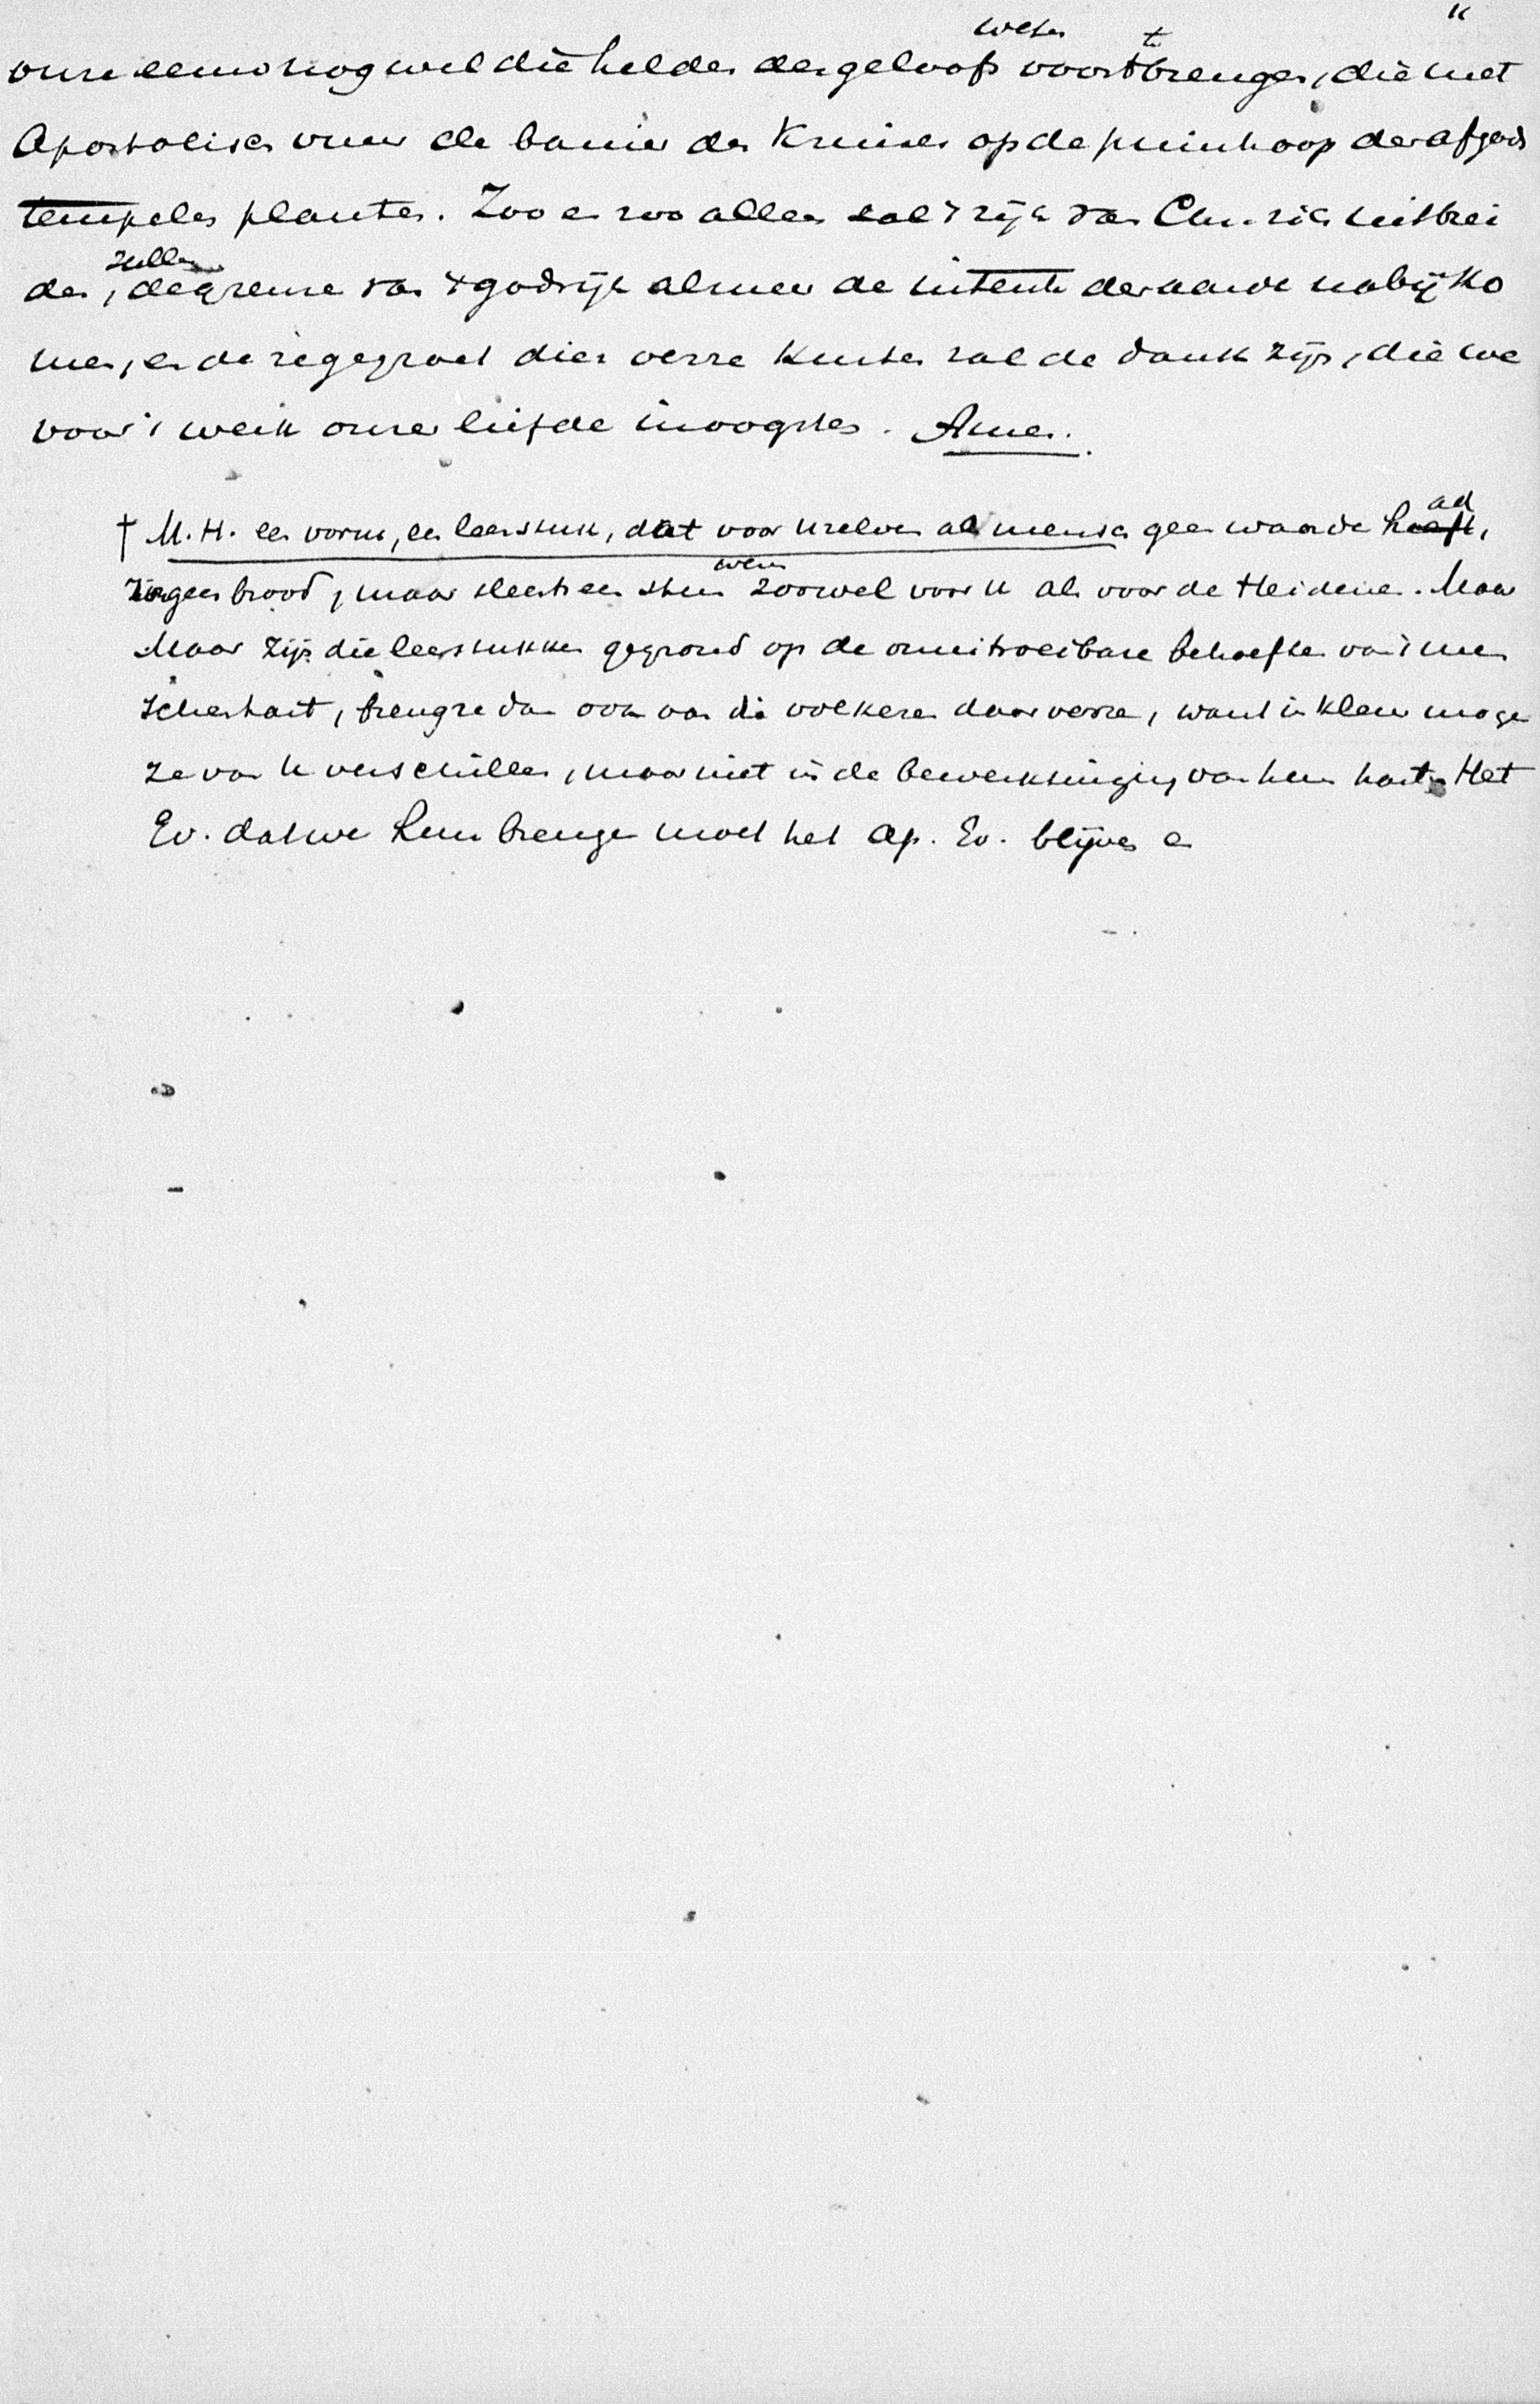 onze eeuw nog wel die helden des geloofs weten voort t brengen, die met
Apostolisch vuur de banier des Kruises op de puinhoop der afgods
tempelen planten. Zoo en zoo alleen zal 't rijk van Chr. zich uitbrei
den, zullen de grenzen van 't godsrijk al meer de uiteinden der aarde nabij ko
men, en de zegegroet dier verre kusten zal de dank zijn, die we
voor 't werk onzer liefde inoogsten. Amen.
† M. H. een vorm, een leerstuk, dat voor uzelven als mensch geen waarde had,
geen brood, maar slechts een steen zoowel voor u als voor de Heidenen. Maar
Maar zijn die leerstukken gegrond op de onuitroeibare behoeften van 't men
schenhart, breng ze dan ook aan die volkeren daar verre, want in kleur mogen
ze van u verschillen, maar niet in de bewerktuiging van hun hart. Het
Ev. dat we hun brengen moet het Ap. Ev. blijven en